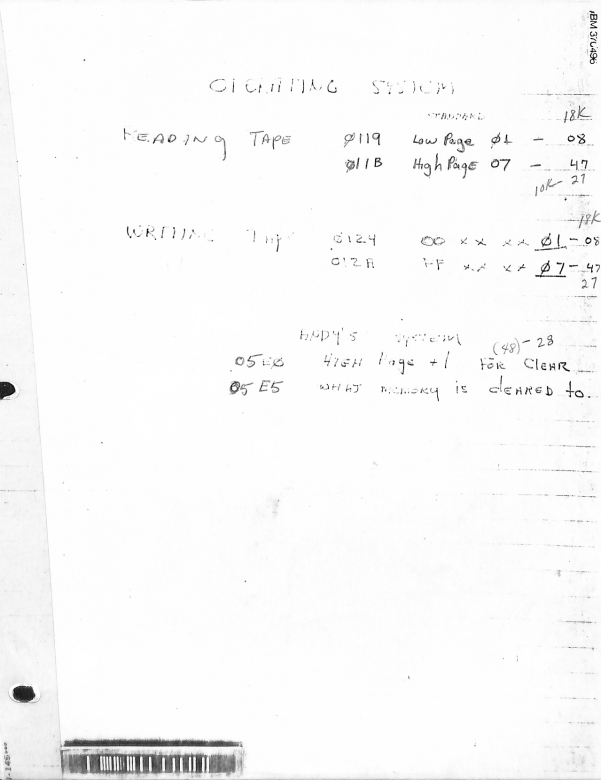 IBM 370496
OPERATING SYSTEM
STANDARD 18K
READING TAPE Ø119 Low Page Ø1 - 08
Ø11B High Page 07 - 47
10K- 27
18K
WRITING Tape 0124 00 xx xx Ø1 - 08
012A FF xx xx Ø7 - 47
27
ANDY'S SYSTEM (48) - 28
05EØ HIGH Page +1 FOR CLEAR
05E5 WHAT MEMORY is CLEARED to.